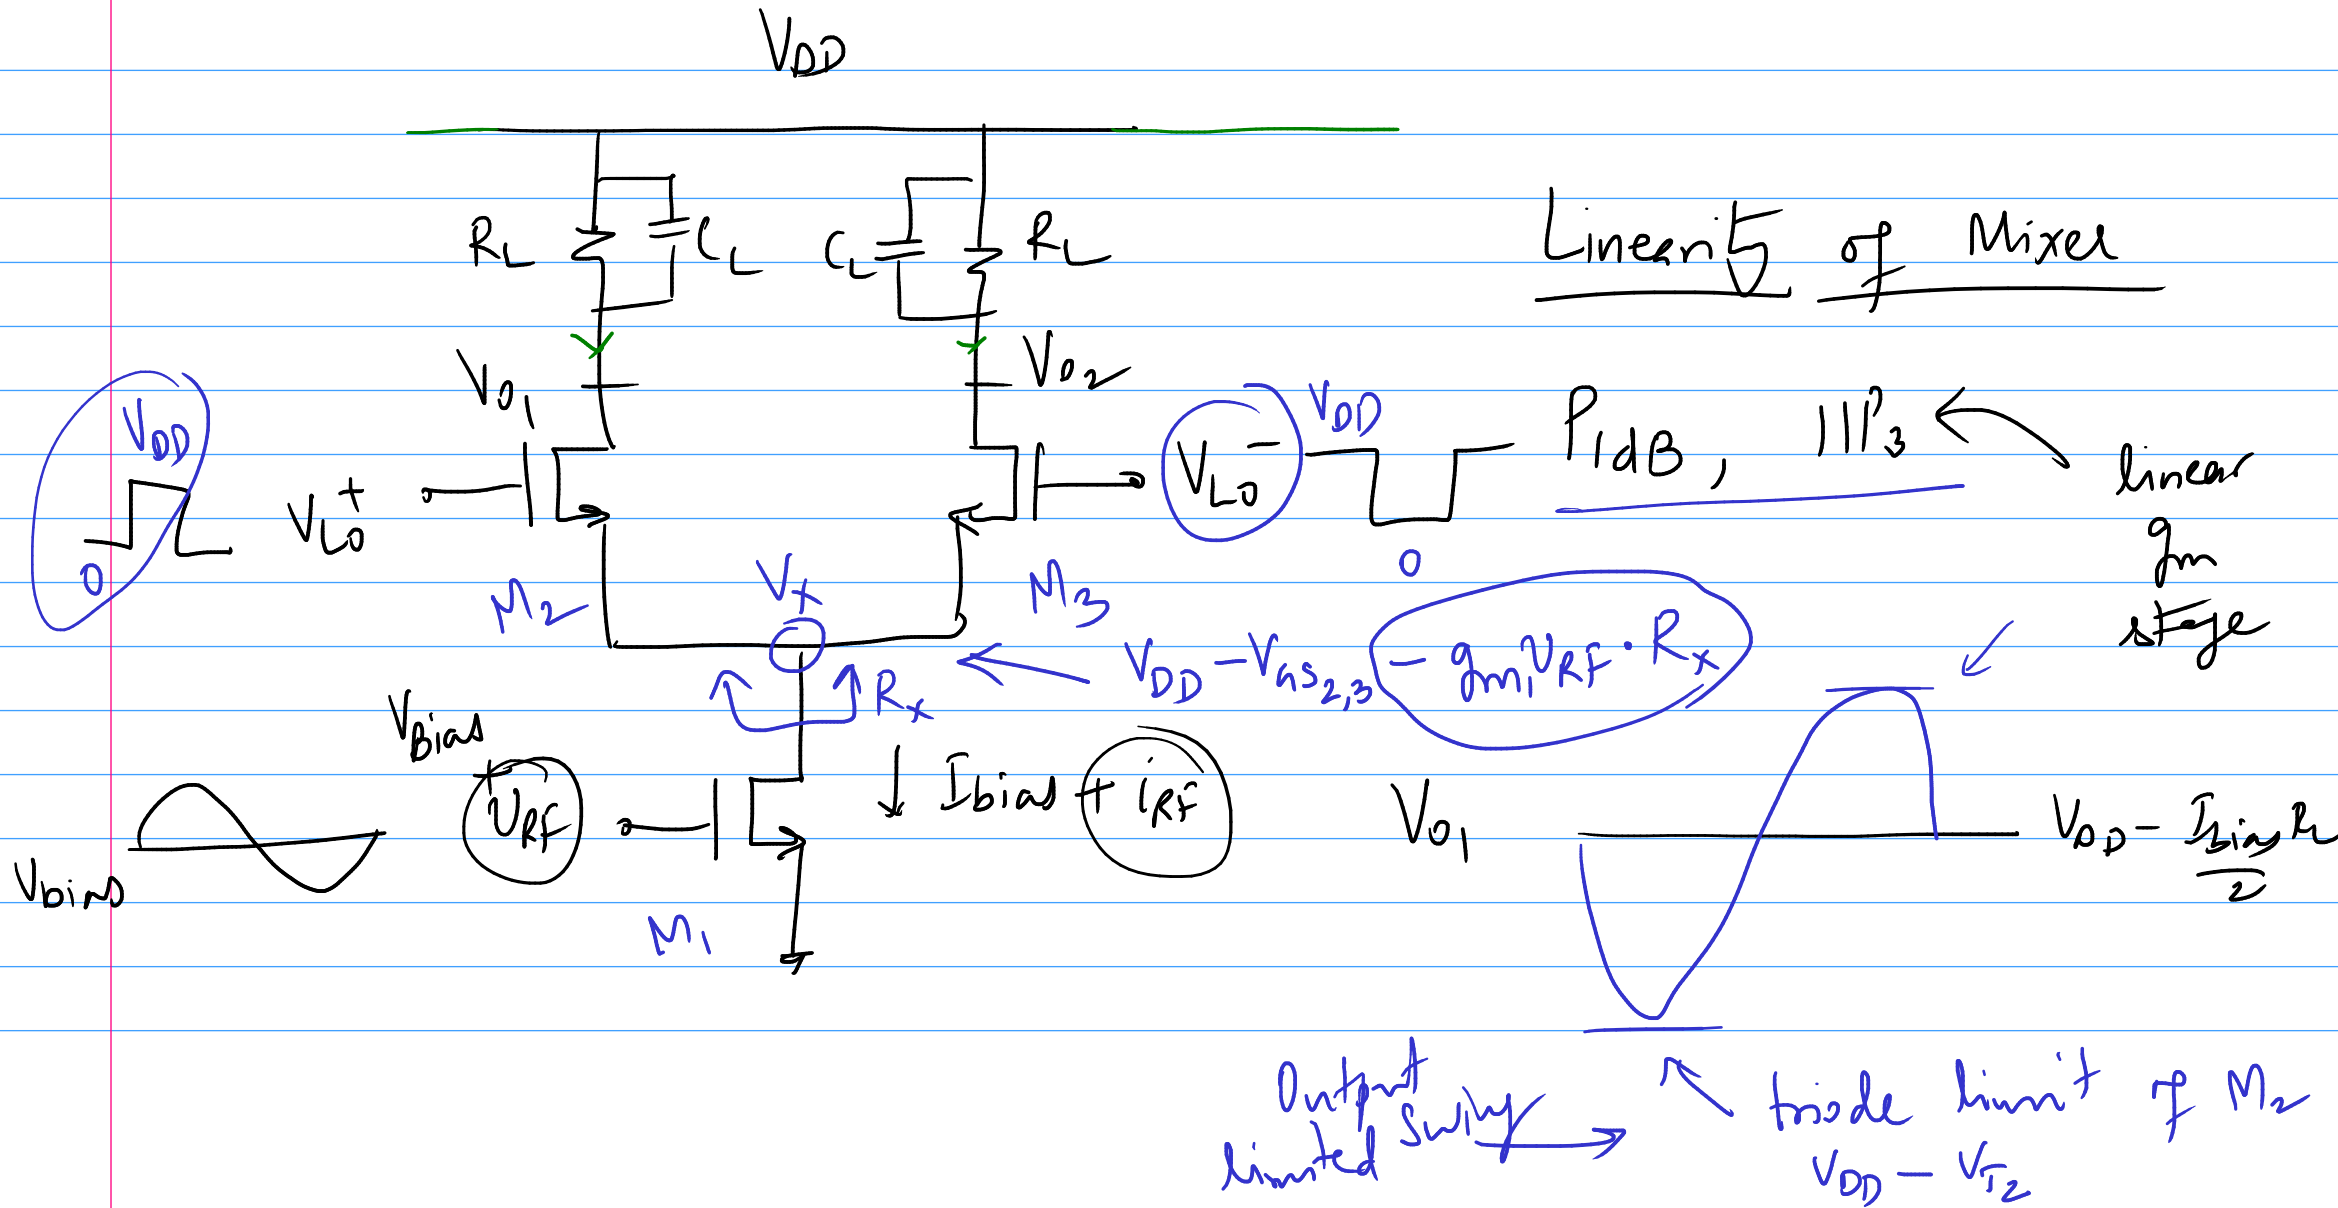 V_DD
R_L C_L C_L R_L
Linearity of Mixer
V_O1 V_O2
V_DD
V_LO^+
0
V_LO^- V_DD
0
P_1dB, IIP_3
linear
gm
stage
M_2 V_x M_3
V_DD - V_GS2,3 - g_m1 v_RF · R_x
R_x
V_Bias
+
v_RF
V_bias
↓ I_bias + i_RF
M_1
V_O1
V_DD - I_bias R_L / 2
Output
Swing
limited
triode limit of M_2
V_DD - V_T2